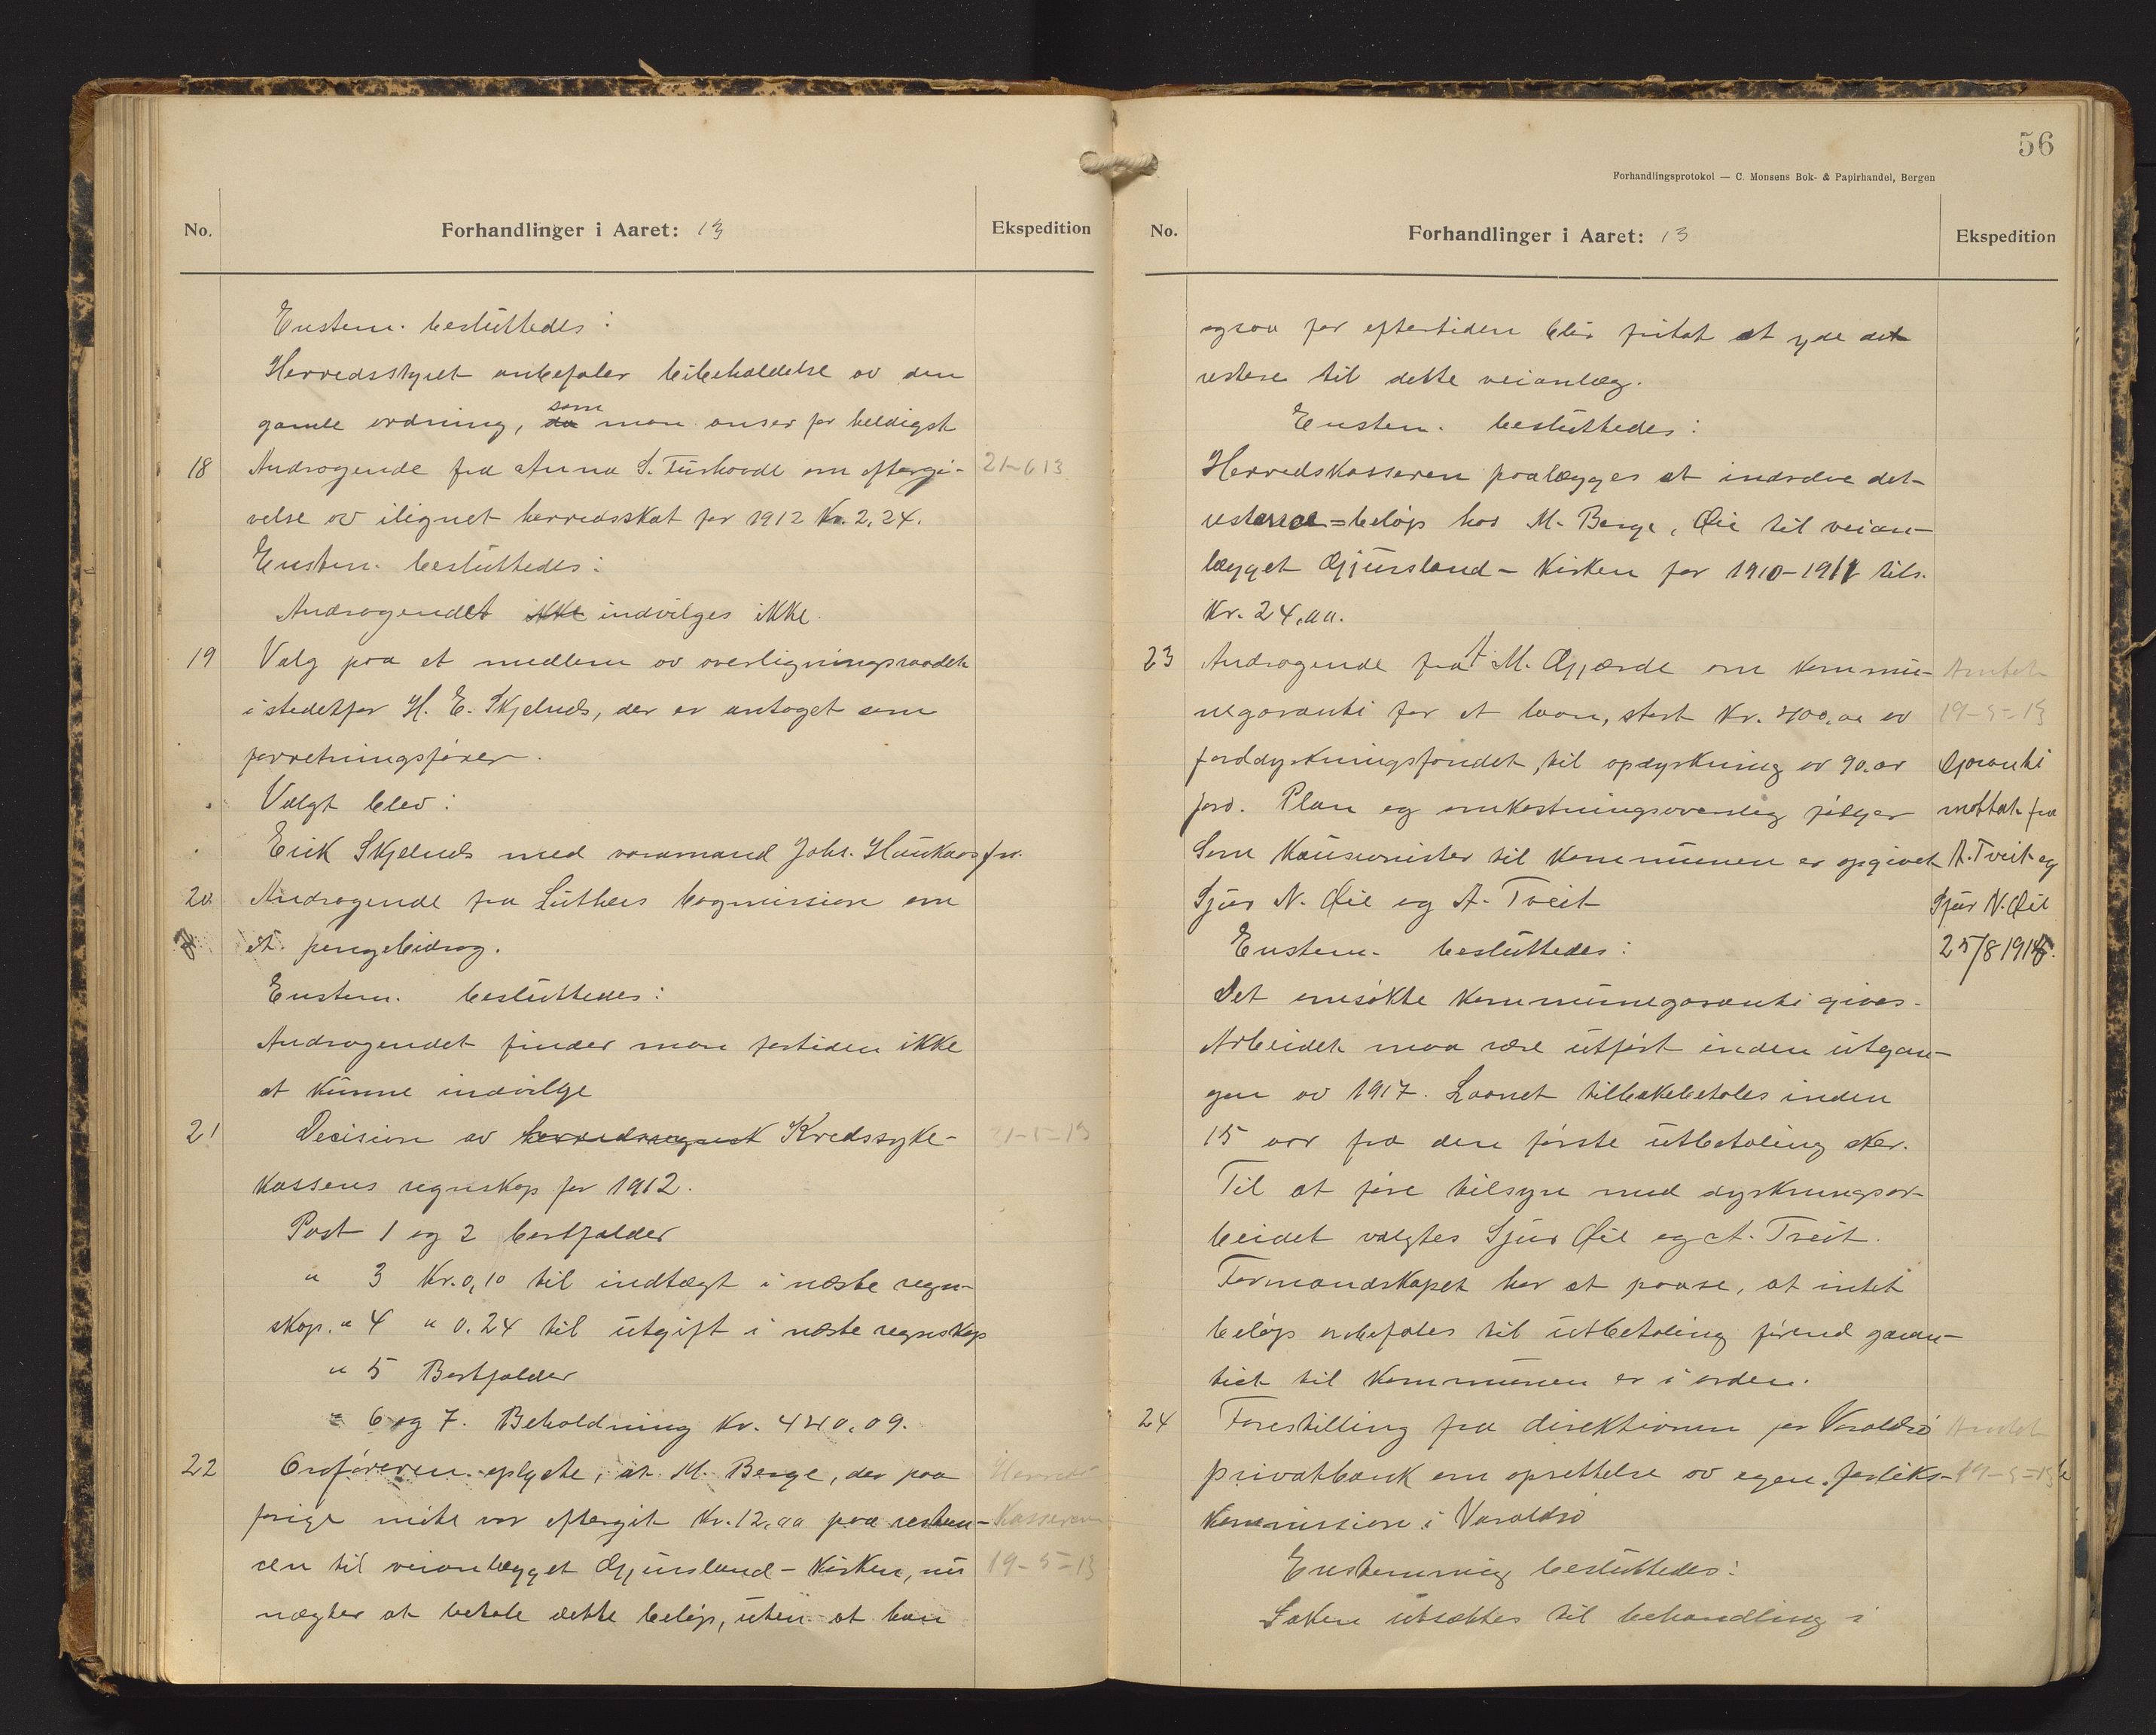 No.
Forhandlinger i Aaret: 13
Ekspedition
Enstem. besluttedes:
Herredsstyret anbefaler bibeholdelse av den
gamle ordning, da som man anser for heldigst
18 Andragende fra Anna S. Furhovde om eftergi- 21-6 13
velse av ilignet herredsskat for 1912 Kr. 2,24.
Enstem. besluttedes:
Andragendet ikke indvilges ikke.
19 Valg paa et medlem av overligningsraadet
istedetfor H. E. Skjelnes, der er antaget som
forretningsfører.
Valgt blev:
Erik Skjelnes med varamand Johs. Haukaas fm.
20 Andragende fra Luthers bogmission om
et pengebidrag.
Enstem. besluttedes:
Andragendet finder man fortiden ikke
at kunne indvilge
21 Decision av herredsregnsk Kredssyke- 21-5-13
kassens regnskap for 1912.
Post 1 og 2 bortfalder
" 3 Kr. 0,10 til indtægt i næste regn-
skap. " 4 " 0.24 til utgift i næste regnskap
" 5 Bortfalder
" 6 og 7. Beholdning Kr. 440.09.
22 Ordføreren oplyste, at M. Berge, der paa Herreds
forige møte var eftergit Kr. 12,00 paa restan- Kasseren
cen til veianlægget Gjuvsland - Kirken, nu 19-5-13
nægter at betale dette beløp, uten at han
56
Forhandlingsprotokol — C. Monsens Bok- & Papirhandel, Bergen
No.
Forhandlinger i Aaret: 13
Ekspedition
ogsaa for eftertiden blir fritat at yde det
restere til dette veianlæg.
Enstem. besluttedes:
Herredskasseren paalægges at inddrive det
resterende beløp hos M. Berge, Øie til veian-
lægget Gjuvsland - Kirken for 1910-1911 tils.
Kr. 24,00.
23 Andragende fra A M. Gjærde om kommu- Amtet
negaranti for et laan, stort Kr. 400,00 av 19-5-13
jorddyrkningsfondet, til opdyrkning av 90. ar Garanti
jord. Plan og omkostningsoverslag følger mottat fra
Som kausionister til kommunen er opgivet A. Tveit og
Sjur N. Øie og A. Tveit Sjur N. Øie
Enstem. besluttedes: 25/8 1915.
Det omsøkte kommunegaranti gives.
Arbeidet maa være utført inden utgan-
gen av 1917. Laanet tilbakebetales inden
15 aar fra den første utbetaling sker.
Til at føre tilsyn med dyrkningsar-
beidet valgtes Sjur Øie og A. Tveit.
Formandskapet har at paase, at intet
beløp anbefales til utbetaling førend garan-
tiet til kommunen er i orden.
24 Forestilling fra direktionen for Varaldsø Amtet
privatbank om oprettelse av egen forliks- 19-5-13
kommission i Varaldsø
Enstemmig besluttedes:
Saken utsættes til behandling i